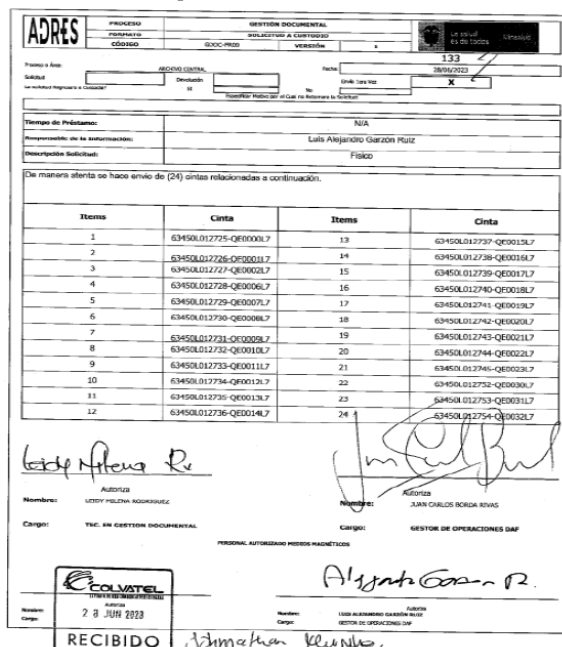 ADRES
PROCESO GESTIÓN DOCUMENTAL
FORMATO SOLICITUD A CUSTODIO
CÓDIGO VERSIÓN
La salud es de todos Minsalud
133
Proceso o Área: ARCHIVO CENTRAL Fecha: 28/06/2023
Solicitud Devolución Envío 1era Vez X
Si No
Especificar Motivo por el Cual no Retornara la Solicitud:
Tiempo de Préstamo: N/A
Responsable de la Información: Luis Alejandro Garzón Ruiz
Descripción Solicitud: Físico
De manera atenta se hace envío de (24) cintas relacionadas a continuación.
Items Cinta Items Cinta
1 63450L012725-QE0000L7 13 63450L012737-QE0015L7
2 63450L012726-QE0001L7 14 63450L012738-QE0016L7
3 63450L012727-QE0002L7 15 63450L012739-QE0017L7
4 63450L012728-QE0006L7 16 63450L012740-QE0018L7
5 63450L012729-QE0007L7 17 63450L012741-QE0019L7
6 63450L012730-QE0008L7 18 63450L012742-QE0020L7
7 63450L012731-QE0009L7 19 63450L012743-QE0021L7
8 63450L012732-QE0010L7 20 63450L012744-QE0022L7
9 63450L012733-QE0011L7 21 63450L012745-QE0023L7
10 63450L012734-QE0012L7 22 63450L012752-QE0030L7
11 63450L012735-QE0013L7 23 63450L012753-QE0031L7
12 63450L012736-QE0014L7 24 63450L012754-QE0032L7
Leidy Milena
Autoriza Autoriza
Nombre: LEIDY MILENA RODRIGUEZ Nombre: JUAN CARLOS BORDA RIVAS
Cargo: TEC. EN GESTION DOCUMENTAL Cargo: GESTOR DE OPERACIONES DAF
PERSONAL AUTORIZADO MEDIOS MAGNÉTICOS
COLVATEL
Autoriza Autoriza
Nombre: 28 JUN 2023 Nombre: LUIS ALEJANDRO GARZÓN RUIZ
Cargo: Cargo: GESTOR DE OPERACIONES DAF
RECIBIDO